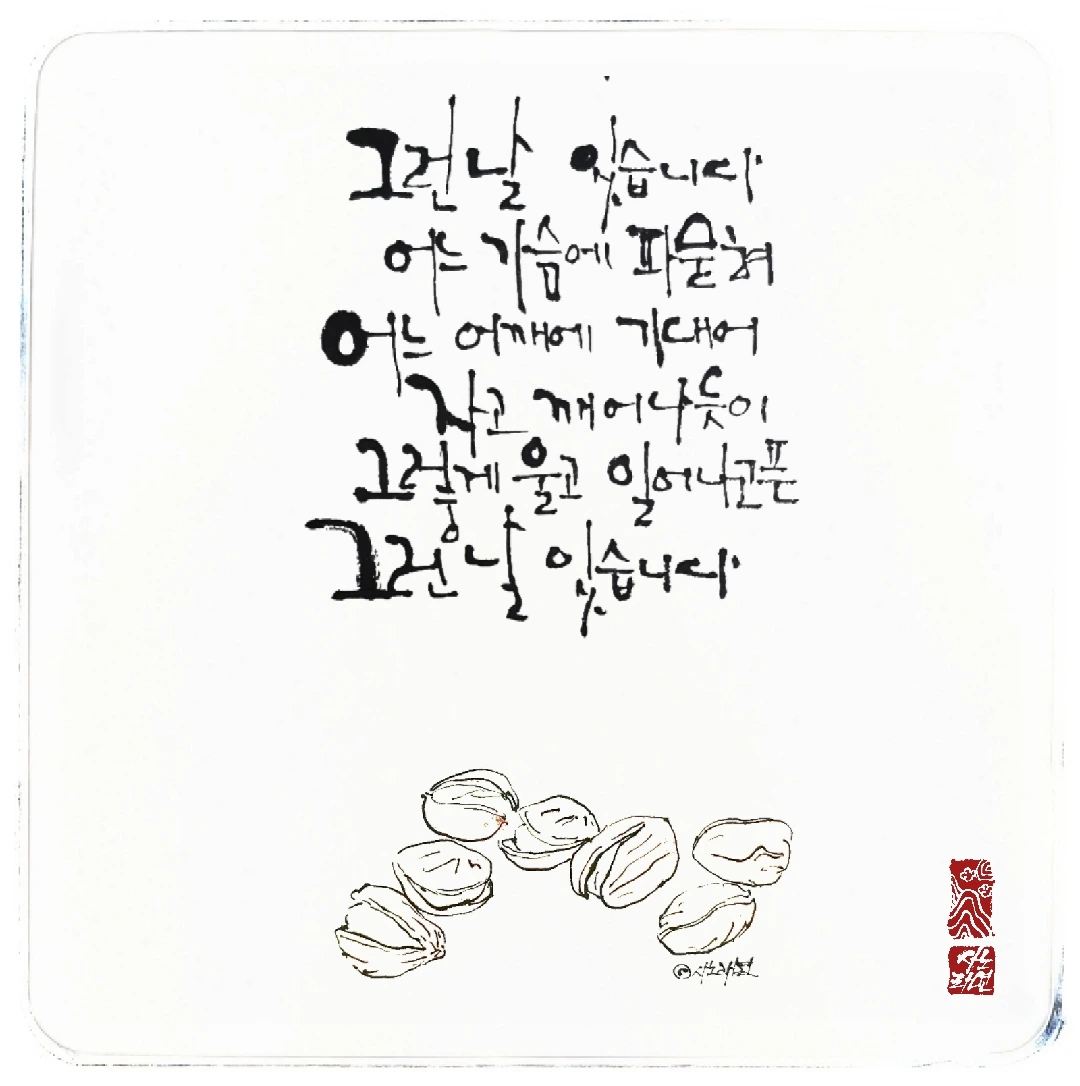 그런날 있습니다
어느 가슴에 파묻혀
어느 어깨에 기대어
자고 깨어나듯이
그렇게 울고 일어나고픈
그런날 있습니다